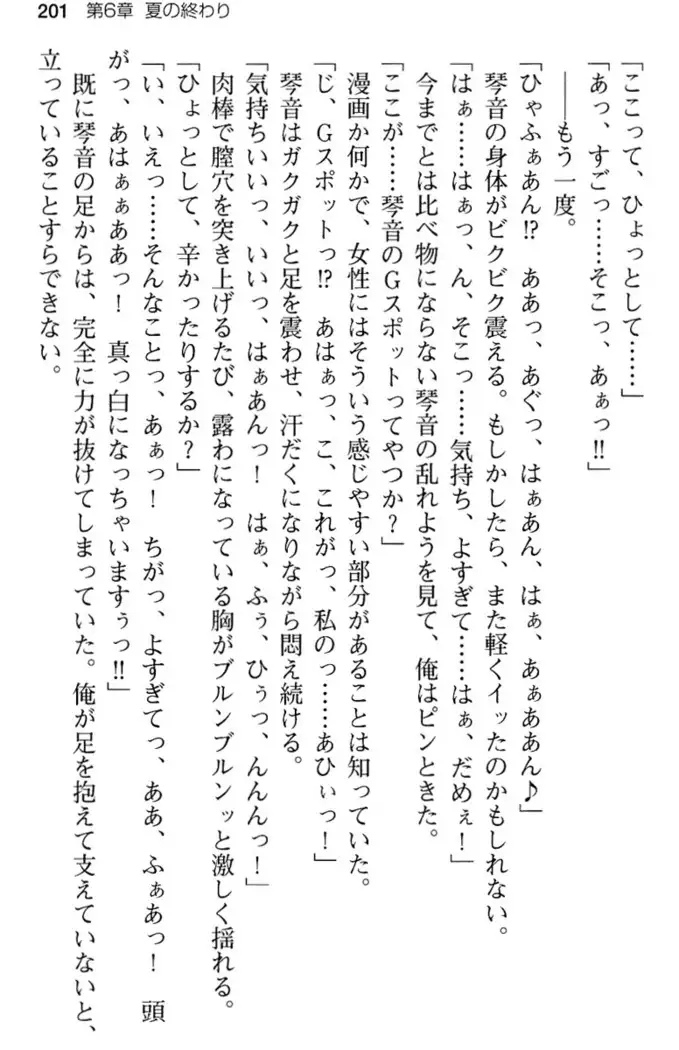 201　第6章 夏の終わり
「ここって、ひょっとして……」
「あっ、すごっ……そこっ、あぁっ!!」
――もう一度。
「ひゃふぁあん!?　ああっ、あぐっ、はぁあん、はぁ、あぁああん♪」
琴音の身体がビクビク震える。もしかしたら、また軽くイッたのかもしれない。
「はぁ……はぁっ、ん、そこっ……気持ち、よすぎて……はぁ、だめぇ！」
今までとは比べ物にならない琴音の乱れようを見て、俺はピンときた。
「ここが……琴音のGスポットってやつか？」
漫画か何かで、女性にはそういう感じやすい部分があることは知っていた。
「じ、Gスポットっ!?　あはぁっ、こ、これがっ、私のっ……あひぃっ！」
琴音はガクガクと足を震わせ、汗だくになりながら悶え続ける。
「気持ちいいっ、いいっ、はぁあんっ！　はぁ、ふぅ、ひぅっ、んんんっ！」
肉棒で膣穴を突き上げるたび、露わになっている胸がブルンブルンッと激しく揺れる。
「ひょっとして、辛かったりするか？」
「い、いえっ……そんなことっ、あぁっ！　ちがっ、よすぎてっ、ああ、ふぁあっ！　頭
がっ、あはぁぁああっ！　真っ白になっちゃいますぅっ!!」
既に琴音の足からは、完全に力が抜けてしまっていた。俺が足を抱えて支えていないと、
立っていることすらできない。